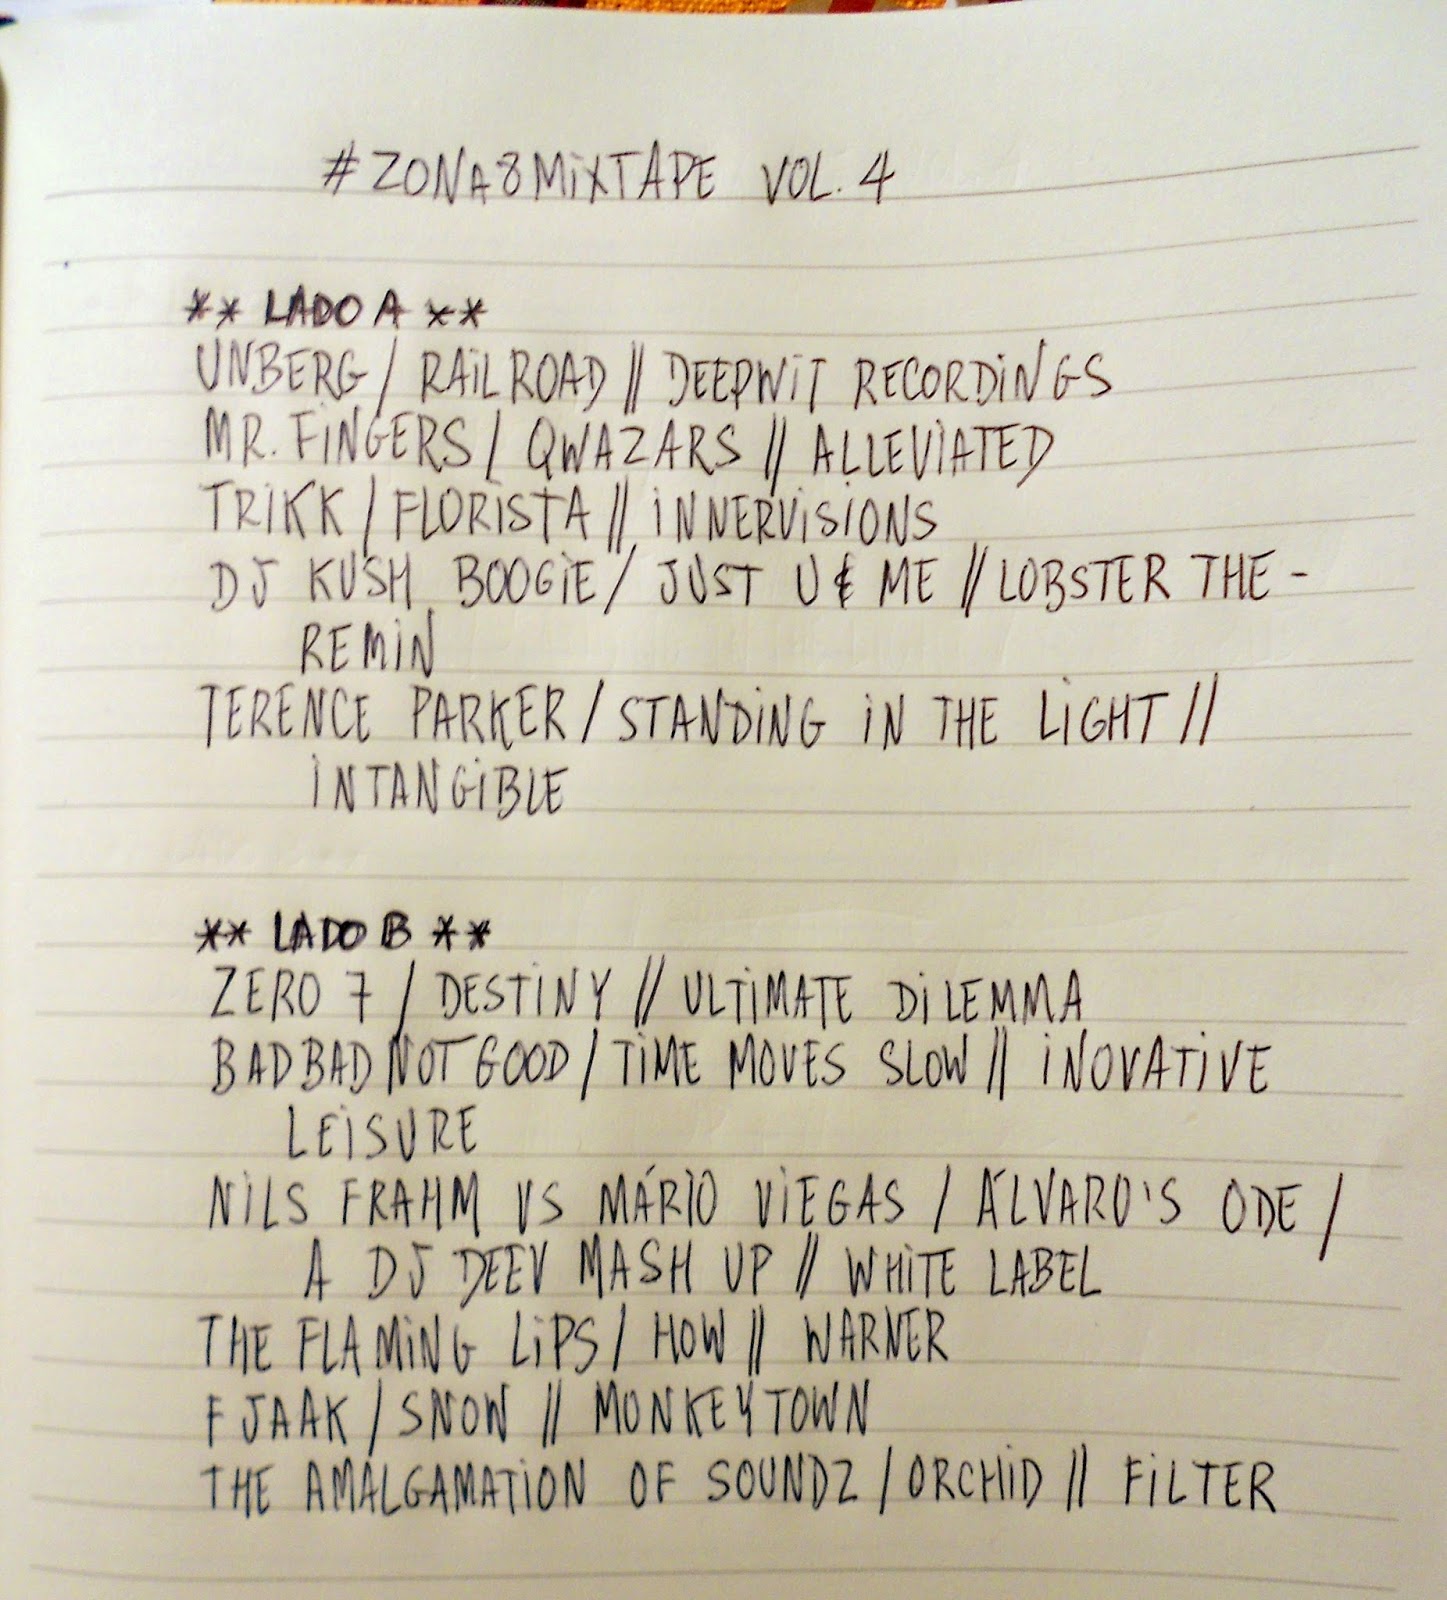 #ZONA8MIXTAPE VOL. 4
** LADO A **
UNBERG / RAILROAD // DEEPWIT RECORDINGS
MR. FINGERS / QWAZARS // ALLEVIATED
TRIKK / FLORISTA // INNERVISIONS
DJ KUSH BOOGIE / JUST U & ME // LOBSTER THE-
REMIN
TERENCE PARKER / STANDING IN THE LIGHT //
INTANGIBLE
** LADO B **
ZERO 7 / DESTINY // ULTIMATE DILEMMA
BADBADNOTGOOD / TIME MOVES SLOW // INOVATIVE
LEISURE
NILS FRAHM VS MÁRIO VIEGAS / ÁLVARO'S ODE /
A DJ DEEV MASH UP // WHITE LABEL
THE FLAMING LIPS / HOW // WARNER
FJAAK / SNOW // MONKEYTOWN
THE AMALGAMATION OF SOUNDZ / ORCHID // FILTER